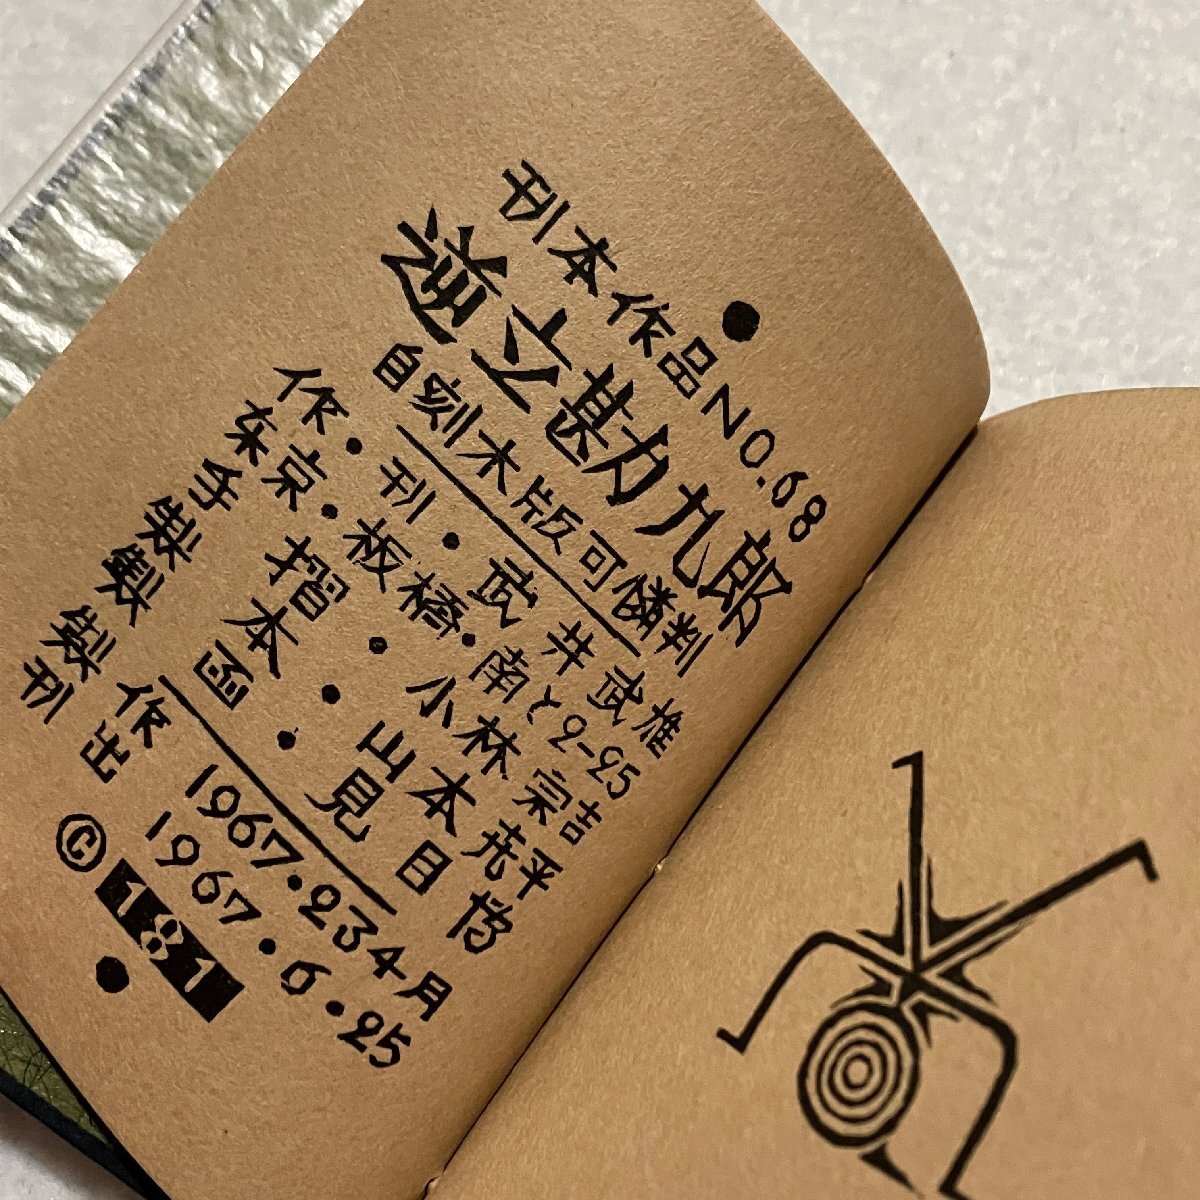 刊本作品NO.68
逆立勘九郎
自刻木版可憐判
作・刊・武井武雄
東京・板橋・南と2-25
手摺・小林宗吉
製本・山本 平
製函・見目
製作 1967・234月
刊出 1967・6・25
© 181